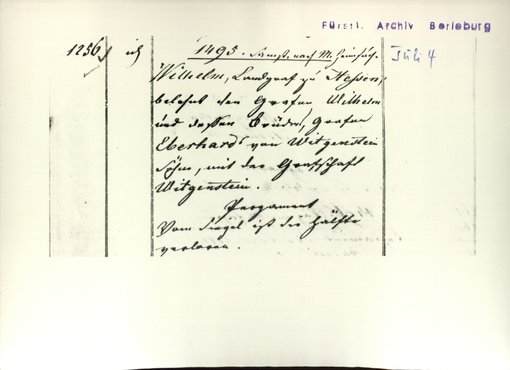 Fürstl. Archiv Berleburg
1256
1495. Samst. nach M. Heimsuch.
Juli 4
Wilhelm, Landgraf zu Hessen,
belehnt den Grafen Wilhelm
und dessen Brüder, Grafen
Eberhards von Witgenstein
Söhne, mit der Grafschaft
Witgenstein.
Pergament
Vom Siegel ist die Hälfte
verloren.